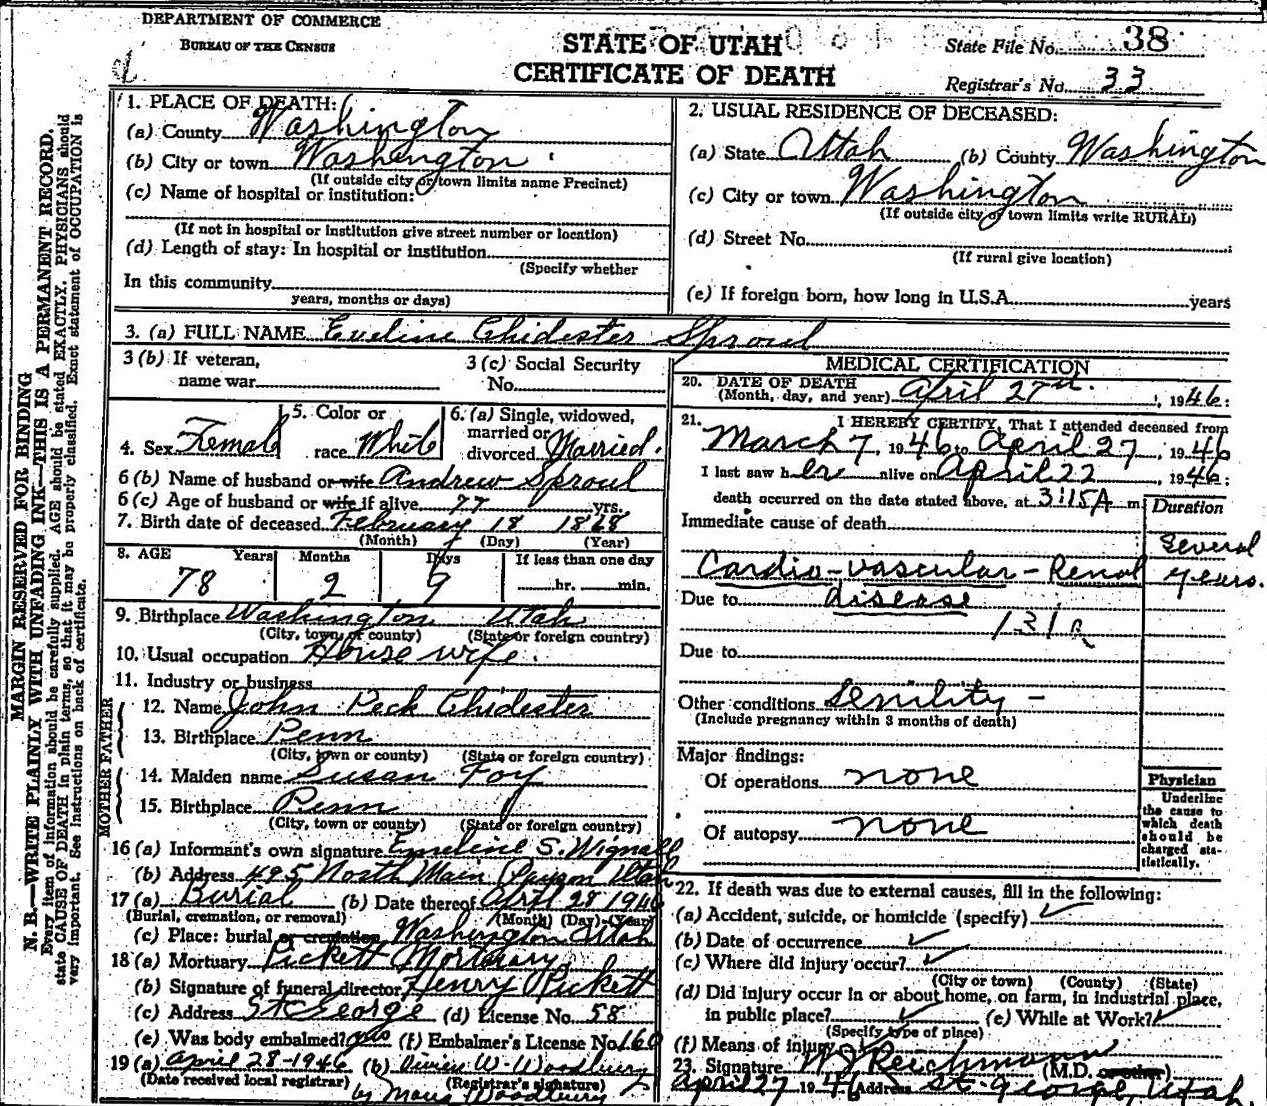 DEPARTMENT OF COMMERCE
BUREAU OF THE CENSUS
STATE OF UTAH
CERTIFICATE OF DEATH
State File No. 38
Registrar's No. 33
MARGIN RESERVED FOR BINDING
N. B.—WRITE PLAINLY WITH UNFADING INK—THIS IS A PERMANENT RECORD.
Every item of information should be carefully supplied. AGE should be stated EXACTLY. PHYSICIANS should
state CAUSE OF DEATH in plain terms, so that it may be properly classified. Exact statement of OCCUPATION is
very important. See instructions on back of certificate.
1. PLACE OF DEATH:
(a) County Washington
(b) City or town Washington
(If outside city or town limits name Precinct)
(c) Name of hospital or institution:
(If not in hospital or institution give street number or location)
(d) Length of stay: In hospital or institution
(Specify whether
In this community
years, months or days)
2. USUAL RESIDENCE OF DECEASED:
(a) State Utah (b) County Washington
(c) City or town Washington
(If outside city or town limits write RURAL)
(d) Street No.
(If rural give location)
(e) If foreign born, how long in U.S.A. years
3. (a) FULL NAME Eveline Chidester Sproul
3 (b) If veteran,
name war
3 (c) Social Security
No.
4. Sex Female
5. Color or
race White
6. (a) Single, widowed,
married or
divorced Married.
6 (b) Name of husband or wife Andrew Sproul
6 (c) Age of husband or wife if alive 77 yrs.
7. Birth date of deceased February 18 1868
(Month) (Day) (Year)
8. AGE Years Months Days If less than one day
78 2 9 hr. min.
9. Birthplace Washington Utah
(City, town or county) (State or foreign country)
10. Usual occupation House wife.
11. Industry or business
FATHER
12. Name John Peck Chidester
13. Birthplace Penn
(City, town or county) (State or foreign country)
MOTHER
14. Maiden name Susan Foy
15. Birthplace Penn
(City, town or county) (State or foreign country)
16 (a) Informant's own signature Emeline S. Wignall
(b) Address 495 North Main Payson Utah
17 (a) Burial (b) Date thereof April 28 1946
(Burial, cremation, or removal) (Month) (Day) (Year)
(c) Place: burial or cremation Washington Utah
18 (a) Mortuary Pickett Mortuary
(b) Signature of funeral director Henry Pickett
(c) Address St George (d) License No. 58
(e) Was body embalmed? yes (f) Embalmer's License No. 160
19 (a) April 28-1946 (b) Vivien W. Woodbury
(Date received local registrar) (Registrar's signature)
by Woodbury
MEDICAL CERTIFICATION
20. DATE OF DEATH
(Month, day, and year) April 27th. , 1946:
21. I HEREBY CERTIFY, That I attended deceased from
March 7, 1946 to April 27, 1946
I last saw her alive on April 22, 1946;
death occurred on the date stated above, at 3:15 A m.
Duration
Immediate cause of death
Cardio-vascular-Renal
Several
years.
Due to disease
131a
Due to
Other conditions Senility -
(Include pregnancy within 3 months of death)
Major findings:
Of operations none
Of autopsy none
Physician
Underline
the cause to
which death
should be
charged sta-
tistically.
22. If death was due to external causes, fill in the following:
(a) Accident, suicide, or homicide (specify) ✓
(b) Date of occurrence ✓
(c) Where did injury occur? ✓
(City or town) (County) (State)
(d) Did injury occur in or about home, on farm, in industrial place,
in public place? ✓ (e) While at Work? ✓
(Specify type of place)
(f) Means of injury
23. Signature W J Reichmann (M.D. or other)
April 27 1946 Address St. George, Utah.